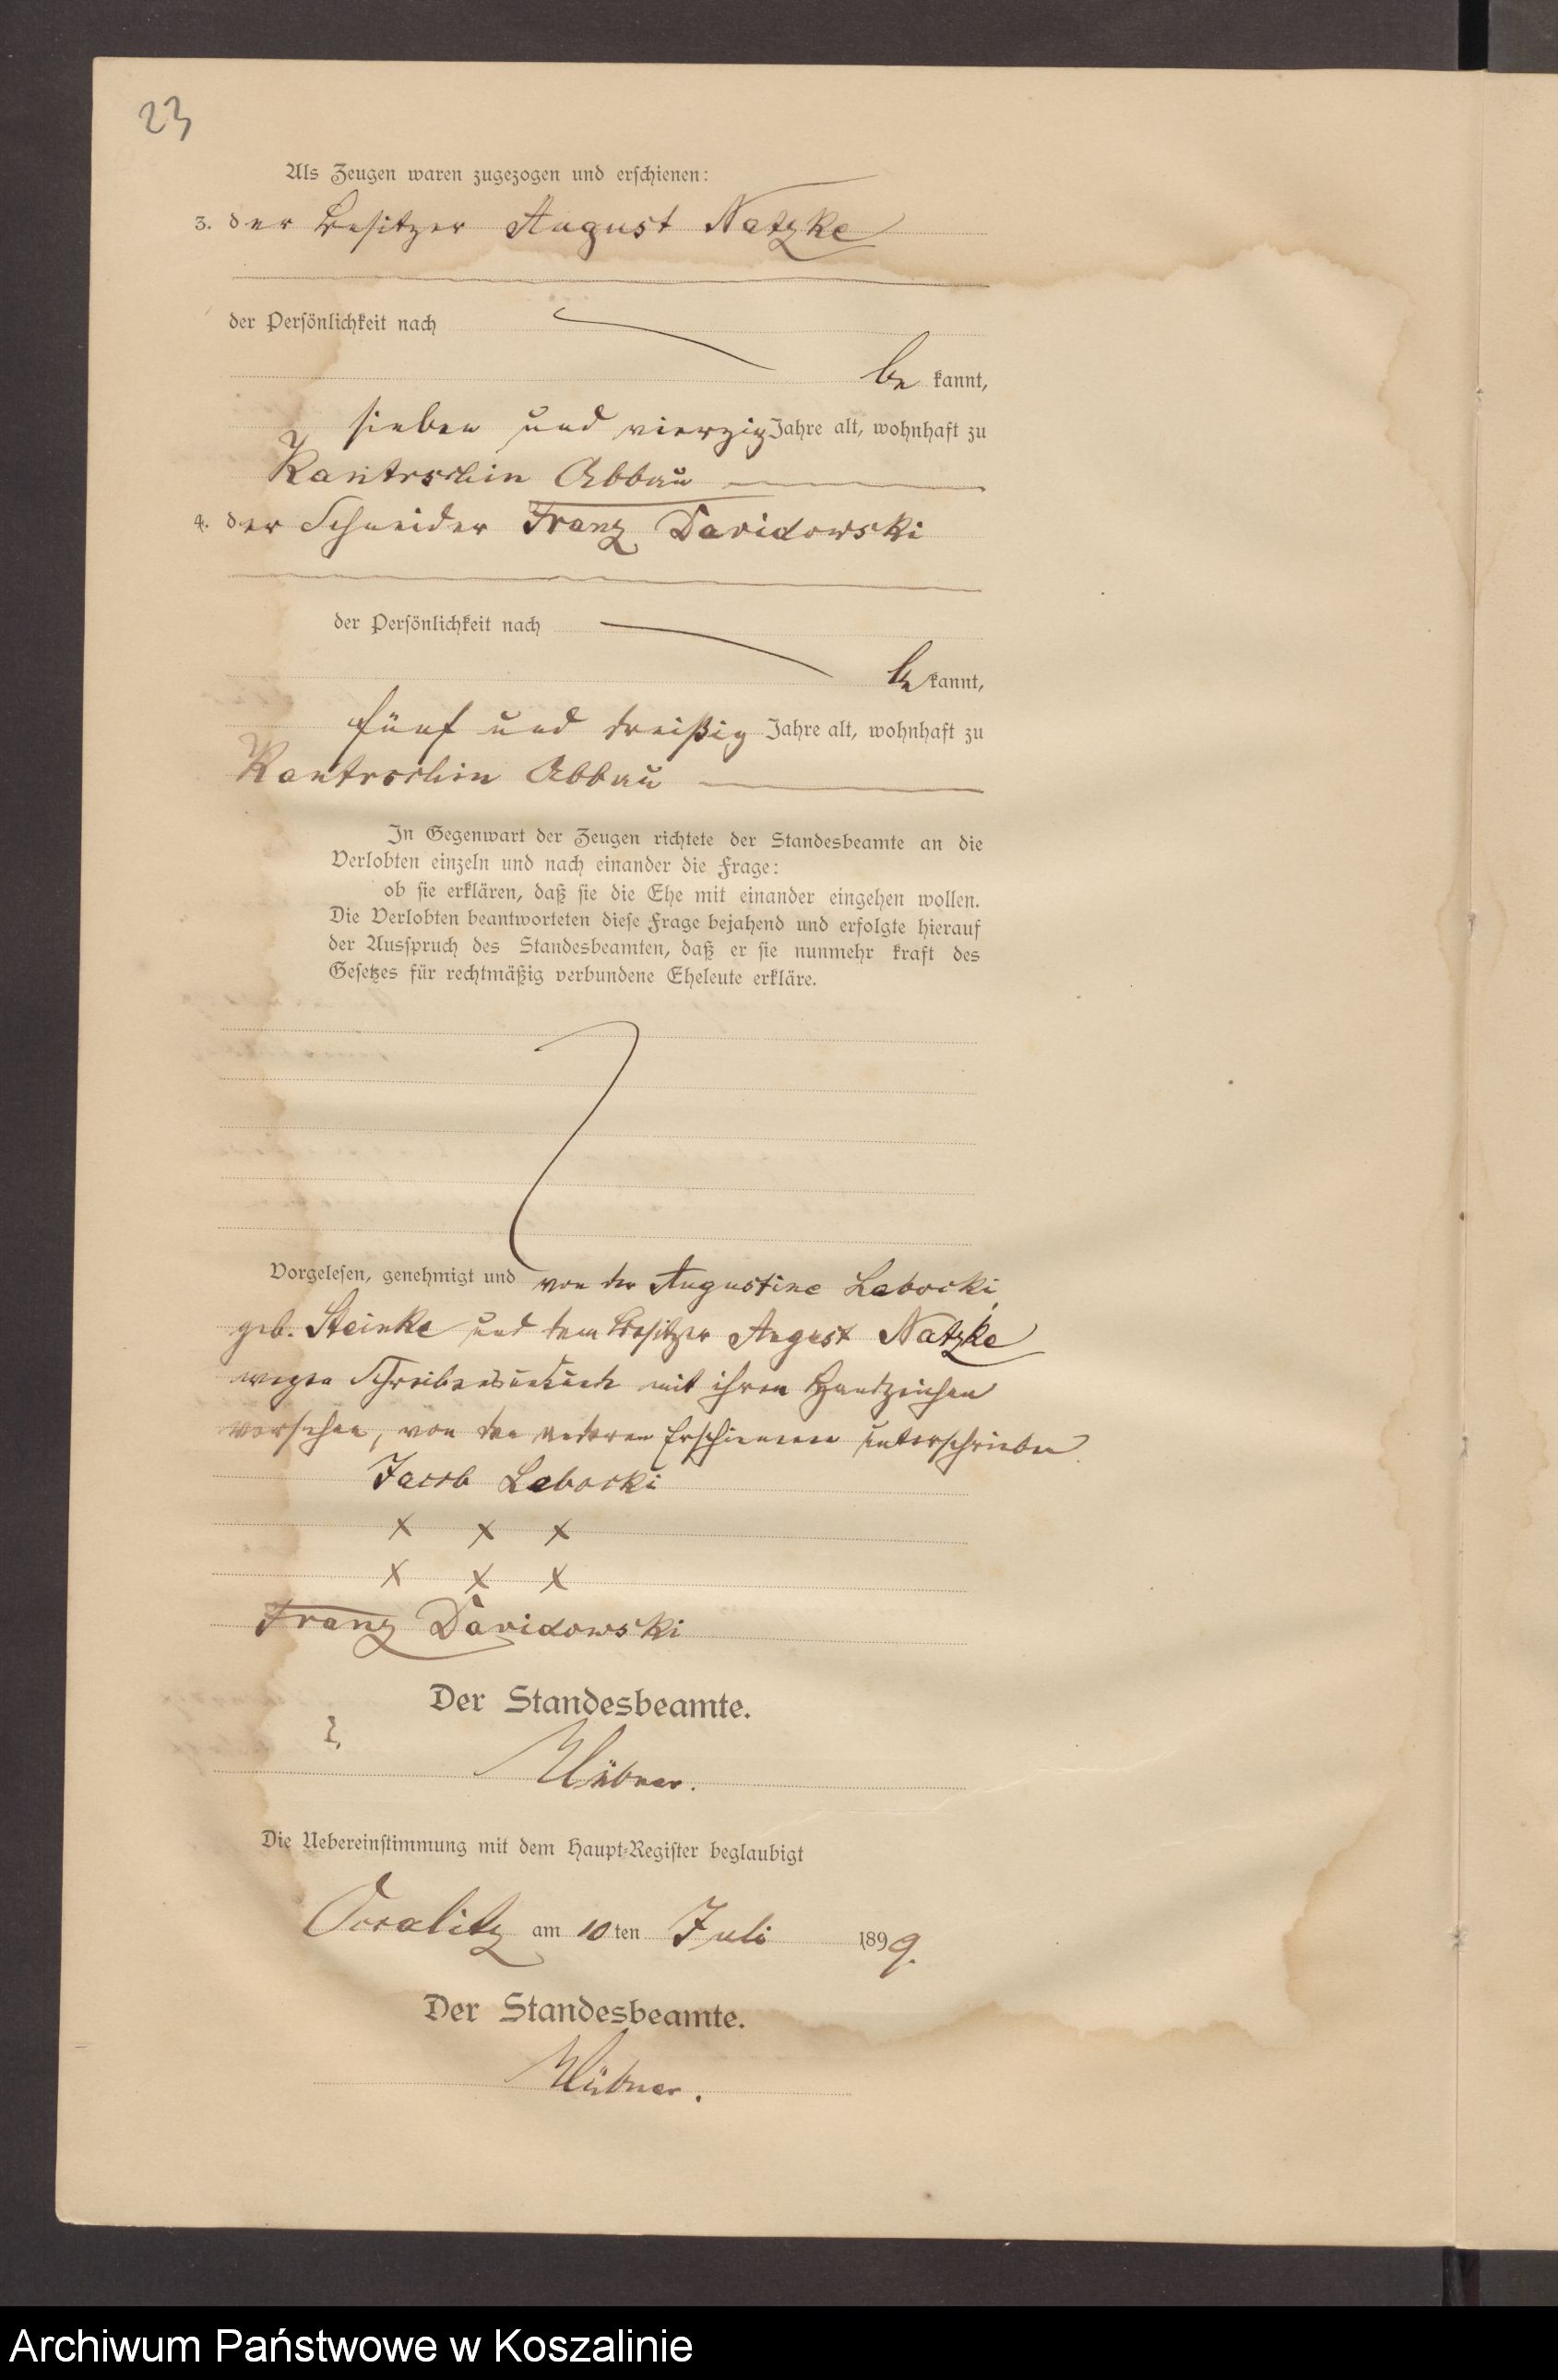 23
Als Zeugen waren zugezogen und erschienen:
3. der Besitzer August Natzke
der Persönlichkeit nach
be kannt,
sieben und vierzig Jahre alt, wohnhaft zu
Kantrschin Abbau
4. der Schneider Franz Davidowski
der Persönlichkeit nach
be kannt,
fünf und dreißig Jahre alt, wohnhaft zu
Kantrschin Abbau
In Gegenwart der Zeugen richtete der Standesbeamte an die
Verlobten einzeln und nach einander die Frage:
ob sie erklären, daß sie die Ehe mit einander eingehen wollen.
Die Verlobten beantworteten diese Frage bejahend und erfolgte hierauf
der Ausspruch des Standesbeamten, daß er sie nunmehr kraft des
Gesetzes für rechtmäßig verbundene Eheleute erkläre.
Vorgelesen, genehmigt und von der Augustine Labocki,
geb. Steinke und dem Besitzer August Natzke
wegen Schreibensunkunde mit ihren Handzeichen
versehen, von den anderen Erschienenen unterschrieben.
Jacob Labocki
x x x
x x x
Franz Davidowski
Der Standesbeamte.
Hübner.
Die Uebereinstimmung mit dem Haupt-Register beglaubigt
am 10 ten Juli 1899.
Der Standesbeamte.
Hübner.
Archiwum Państwowe w Koszalinie